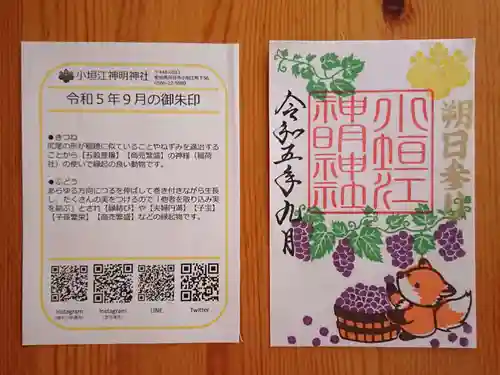 小垣江神明神社
令和５年９月の御朱印
●きつね
尻尾の形が稲穂に似ていることやねずみを退治する
ことから【五穀豊穣】【商売繁盛】の神様（稲荷
社）の使いで縁起の良い動物です。
●ぶどう
あらゆる方向につるを伸ばして巻き付きながら生長
し、たくさんの実をつけるので「他者を取り込み実
を結ぶ」とされ【縁結び】や【夫婦円満】【子宝】
【子孫繁栄】【商売繁盛】などの縁起物です。
Instagram
Instagram
LINE
Twitter
朔日参り
小垣江
神明神社
令和五年九月